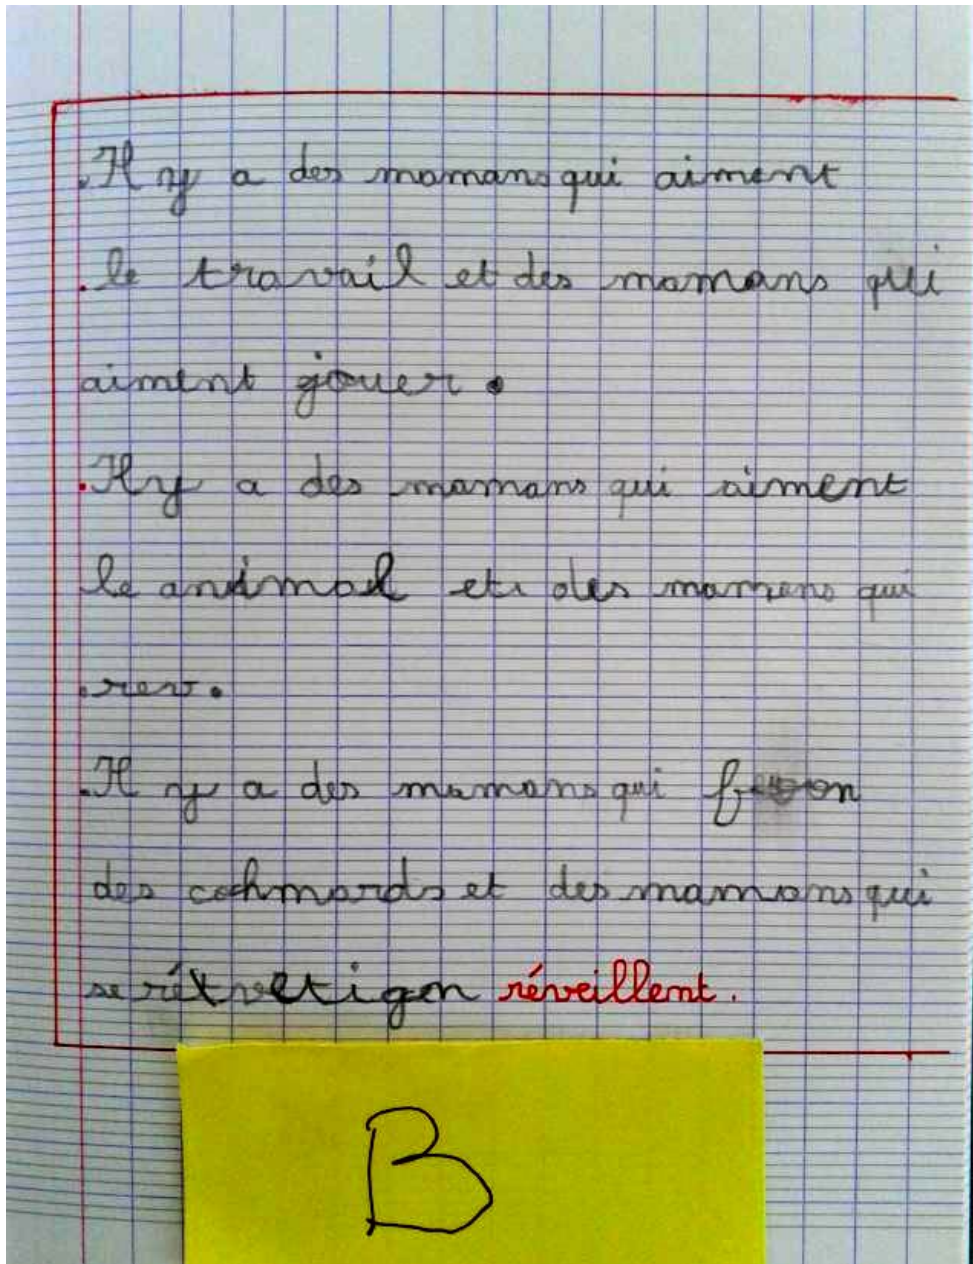 .Il y a des mamans qui aiment
.le travail et des mamans qui
aiment jouer.
.Il y a des mamans qui aiment
le animal et des mamans qui
.rev.
.Il y a des mamans qui fon
des cohmards et des mamans qui
se réveillent.
B